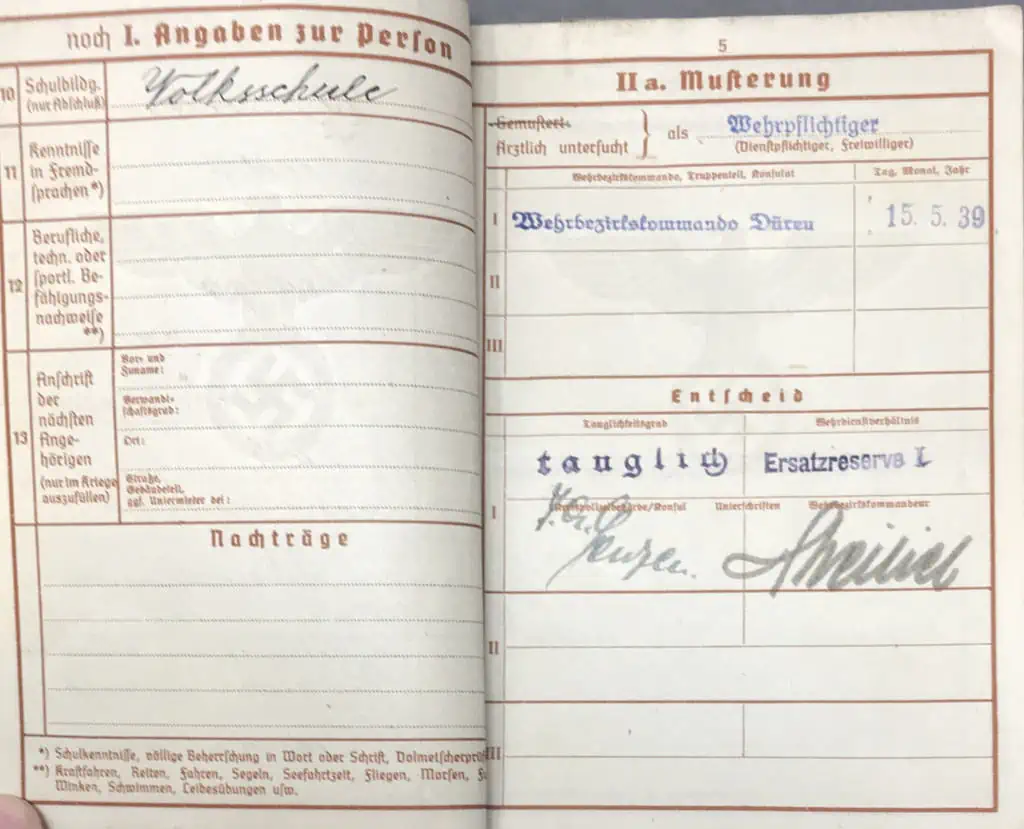 noch I. Angaben zur Person
10 Schulbildg.
(nur Abschluß)
Volksschule
11 Kenntnisse
in Fremd-
sprachen *)
12 Berufliche,
techn. oder
sportl. Be-
fähigungs-
nachweise
**)
13 Anschrift
der
nächsten
Ange-
hörigen
(nur im Kriege
auszufüllen)
Vor- und
Zuname:
Verwandt-
schaftsgrad:
Ort:
Straße,
Gebäudeteil,
ggf. Untermieter bei:
Nachträge
*) Schulkenntnisse, völlige Beherrschung in Wort oder Schrift,
**) Kraftfahren, Reiten, Fahren, Segeln, Seefahrtzeit, Fliegen, Morsen,
Winken, Schwimmen, Leibesübungen usw.
5
II a. Musterung
Gemustert
Ärztlich untersucht
als Wehrpflichtiger
(Dienstpflichtiger, Freiwilliger)
Wehrbezirkskommando, Truppenteil, Konsulat
Tag, Monat, Jahr
I Wehrbezirkskommando Düren 15. 5. 39
II
III
Entscheid
Tauglichkeitsgrad Wehrdienstverhältnis
tauglich Ersatzreserve I
I
Kreispolizeibehörde/Konsul Unterschriften Wehrbezirkskommandeur
II
III